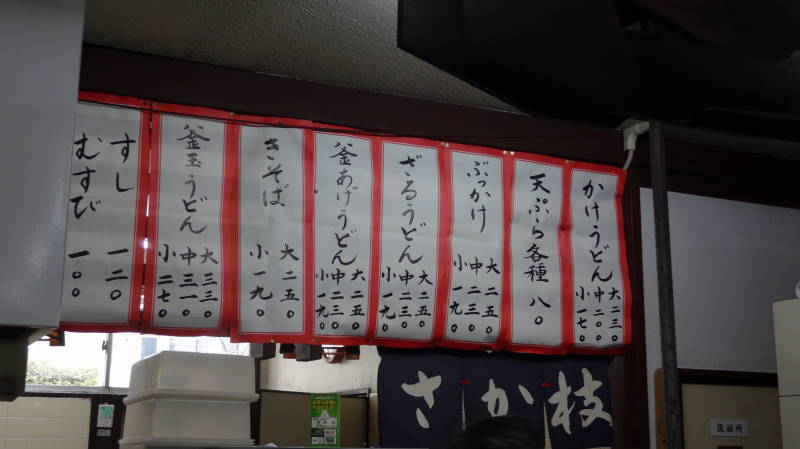 かけうどん
大二三〇
中二〇〇
小一七〇
天ぷら各種 八〇
ぶっかけ
大二五〇
中二三〇
小一九〇
ざるうどん
大二五〇
中二三〇
小一九〇
釜あげうどん
大二五〇
中二三〇
小一九〇
きそば
大二五〇
小一九〇
釜玉うどん
大三三〇
中三一〇
小二七〇
すし 一二〇
むすび 一〇〇
さか枝
洗面所